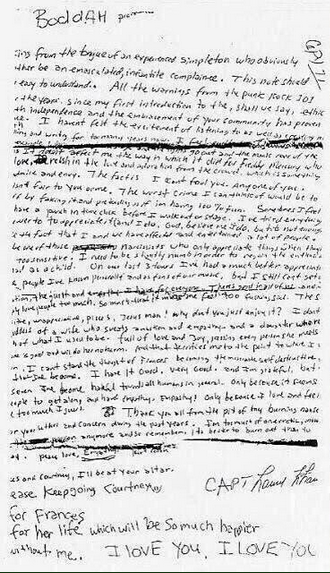 BoddAH
ing from the tongue of an experienced simpleton who obviously
ther be an emasculated, infantile complainee. This note should
easy to understand. All the warnings from the punk rock 101
the years. since my first introduction to the, shall we say, ethics
th independence and the embracement of your community has proven
I havent felt the excitement of listening to as well as creating
writing for too many years now. I feel
affect me the way in which it did for Freddy Mercury who
love, relish in the love and adoration from the crowd, which is something
admire and envy. The fact is I cant fool you. Anyone of you.
isnt fair to you or me. The worst crime I can think of would be to
by faking it and pretending as if im having 100% fun. Sometimes I feel
have a punch in time clock before I walk out on stage. I've tried everything
to appreciate it and I do. God, believe me I do, but its not enough.
the fact that I and we have affected and entertained a lot of people.
be one of those Narcissists who only appreciate things when they're
too sensitive. I need to be slightly numb in order to regain the enthusiasm
as a child. On our last 3 tours I've had a much better appreciation
people I've known personally and as fans of our music, but I still cant get
the guilt and empathy I have for everyone. Theres good in all of us and
love people too much. So much that it makes me feel too sad.
appreciative, pisces, Jesus man! why don't you just enjoy it? I dont
of a wife who sweats ambition and empathy and a daughter who
of what I used to be. full of love and joy, kissing every person she meets
is good and will do her no harm. And that terrifies me to the point to where I
I can't stand the thought of Frances becoming the miserable self destructive,
I've become. I have it Good, very Good. and I'm grateful, but
seven I've become hateful towards all humans in general. Only because it seems
to get along and have empathy. Empathy! Only because I love and feel
too much I guess. Thank you all from the pit of my burning nausea
your letters and concern during the past years. I'm too much of an erratic, moody
anymore and so remember, its better to burn out than to
peace, love, Empathy.
es and Courtney, I'll be at your altar.
ease Keep going Courtney
for Frances
for her life which will be so much happier
without me. I LOVE YOU. I LOVE YOU